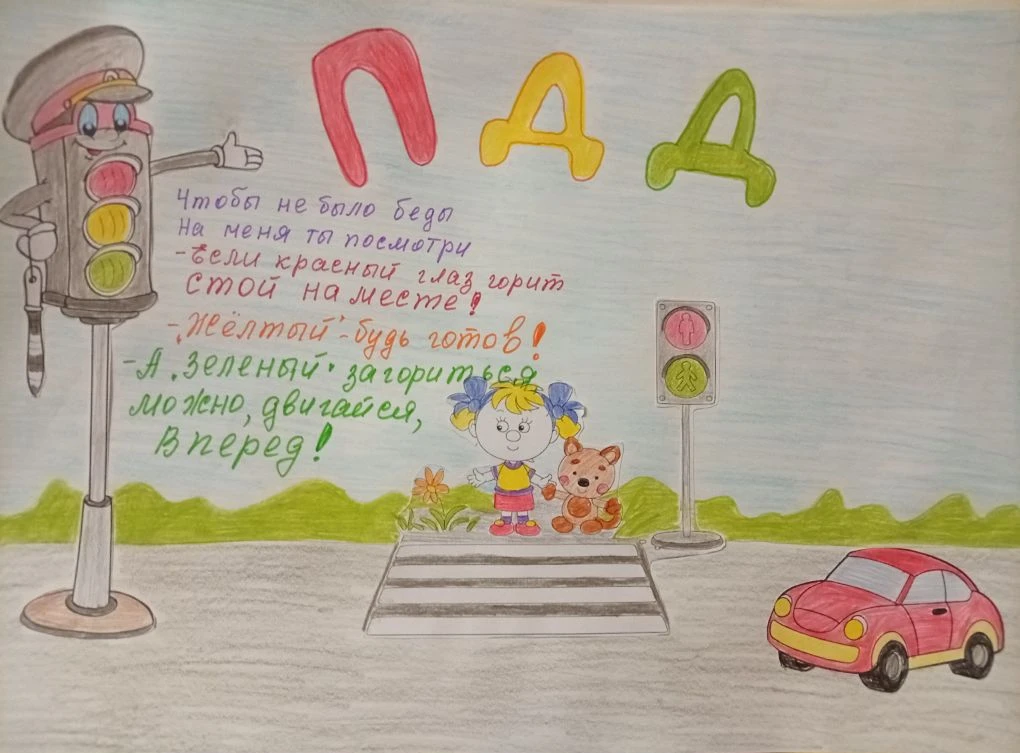 ПДД
Чтобы не было беды
На меня ты посмотри
-Если красный глаз горит
Стой на месте!
-„Жёлтый"-будь готов!
-А „зеленый" загориться
можно, двигайся,
Вперед!